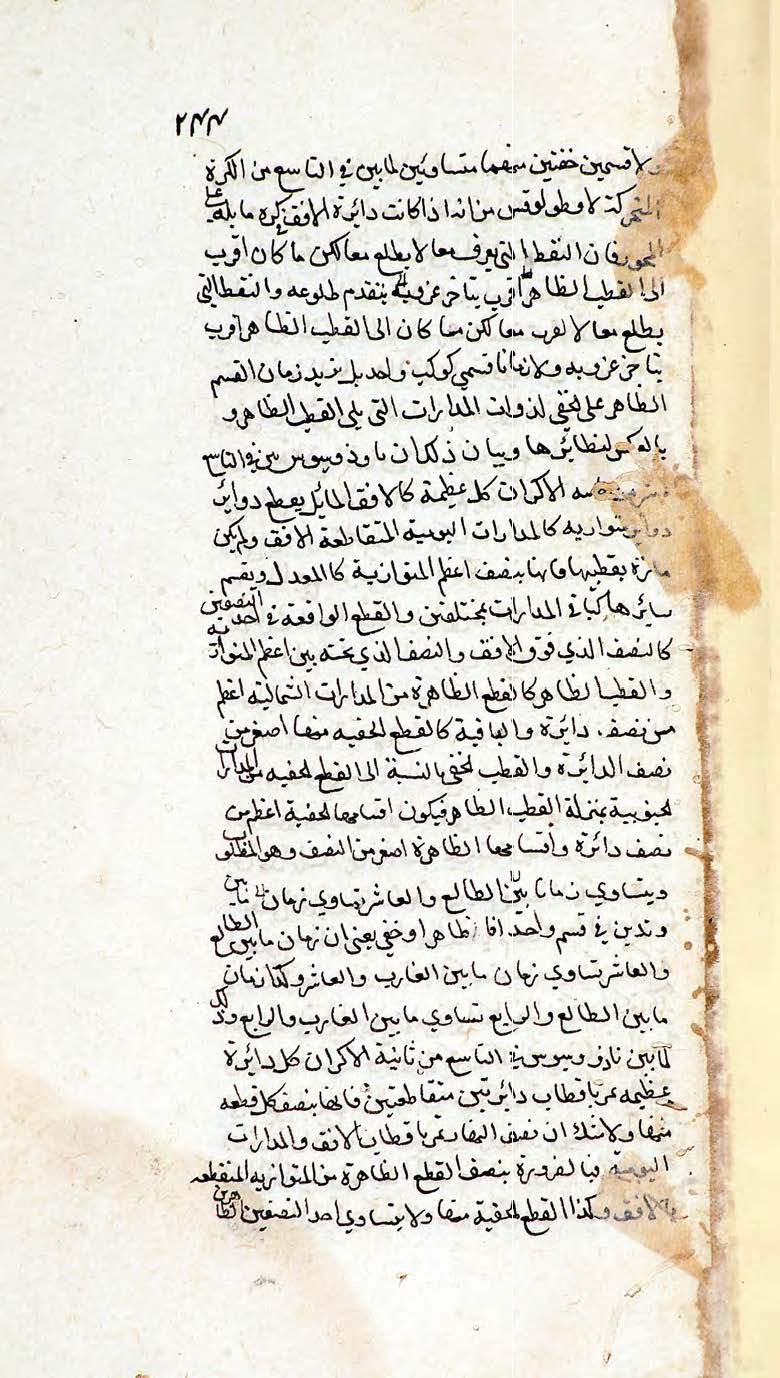 ٢٤٤
ولا قسمين خفيين منهما متساويين لما بين في التاسع من الكرة
المتحركة لاوطولوقس من انه اذا كانت دائرة الافق في كرة مايله على
المحور فان النقط التي يعرف معا لا يطلع معا لكن ما كان اقرب
الى القطب الظاهر اقرب يتاخر غروبه يتقدم طلوعه والنقط التي
يطلع معا لا لغرب معا لكن ما كان الى القطب الظاهر اقرب
يتاخر غروبه ولا زمانا قسمي كوكب واحد بل يزيد زمان القسم
الظاهر على الخفي لذوات المدارات التي يلى القطب الظاهر و
بالعكس لنظائرها وبيان ذلك ان ثاوذوسيوس بين في التاسع
الاكر ان كل عظيمة كالافق المائل يقطع دواير
دواير متوازيه كالمدارات اليومية المتقاطعة الافق ولم يكن
مارة بقطبها فانها ينصف اعظم المتوازية كالمعدل ويقسم
سائرها كباقي المدارات بمختلفتين والقطع الواقعة في احد النصفين
كالنصف الذي فوق الافق والنصف الذي تحته بين اعظم المتوازية
والقطب الظاهر كالقطع الظاهرة من المدارات الشمالية اعظم
من نصف دائرة والباقية كالقطع الخفيه منها اصغر من
نصف الدائرة والقطب الخفي بالنسبة الى القطع الخفيه من المدارات
الجنوبية بمنزلة القطب الظاهر فيكون اقسامها الخفية اعظم من
نصف دائرة واقسامها الظاهرة اصغر من النصف وهو المطلوب
ويتساوي زمانا بين الطالع والعاشر يتساوي زمان ما بين
وتدين في قسم واحد اما ظاهرا او خفي يعنى ان زمان ما بين الطالع
والعاشر يتساوي زمان ما بين الغارب والعاشر وكذا زمان
ما بين الطالع والرابع تساوي ما بين الغارب والرابع وذلك
لما بين ثاوذوسيوس في التاسع من ثانية الاكر ان كل دائرة
عظيمه تمر باقطاب دائرتين متقاطعتين فانها ينصف كل قطعه
منها ولا شك ان نصف النهار تمر باقطاب الافق والمدارات
اليوميه فبالضرورة ينصف القطع الظاهرة من المتوازيه المنقطعه
بالافق وكذا القطع الخفية منها ولا يتساوي احد النصفين الظاهرين